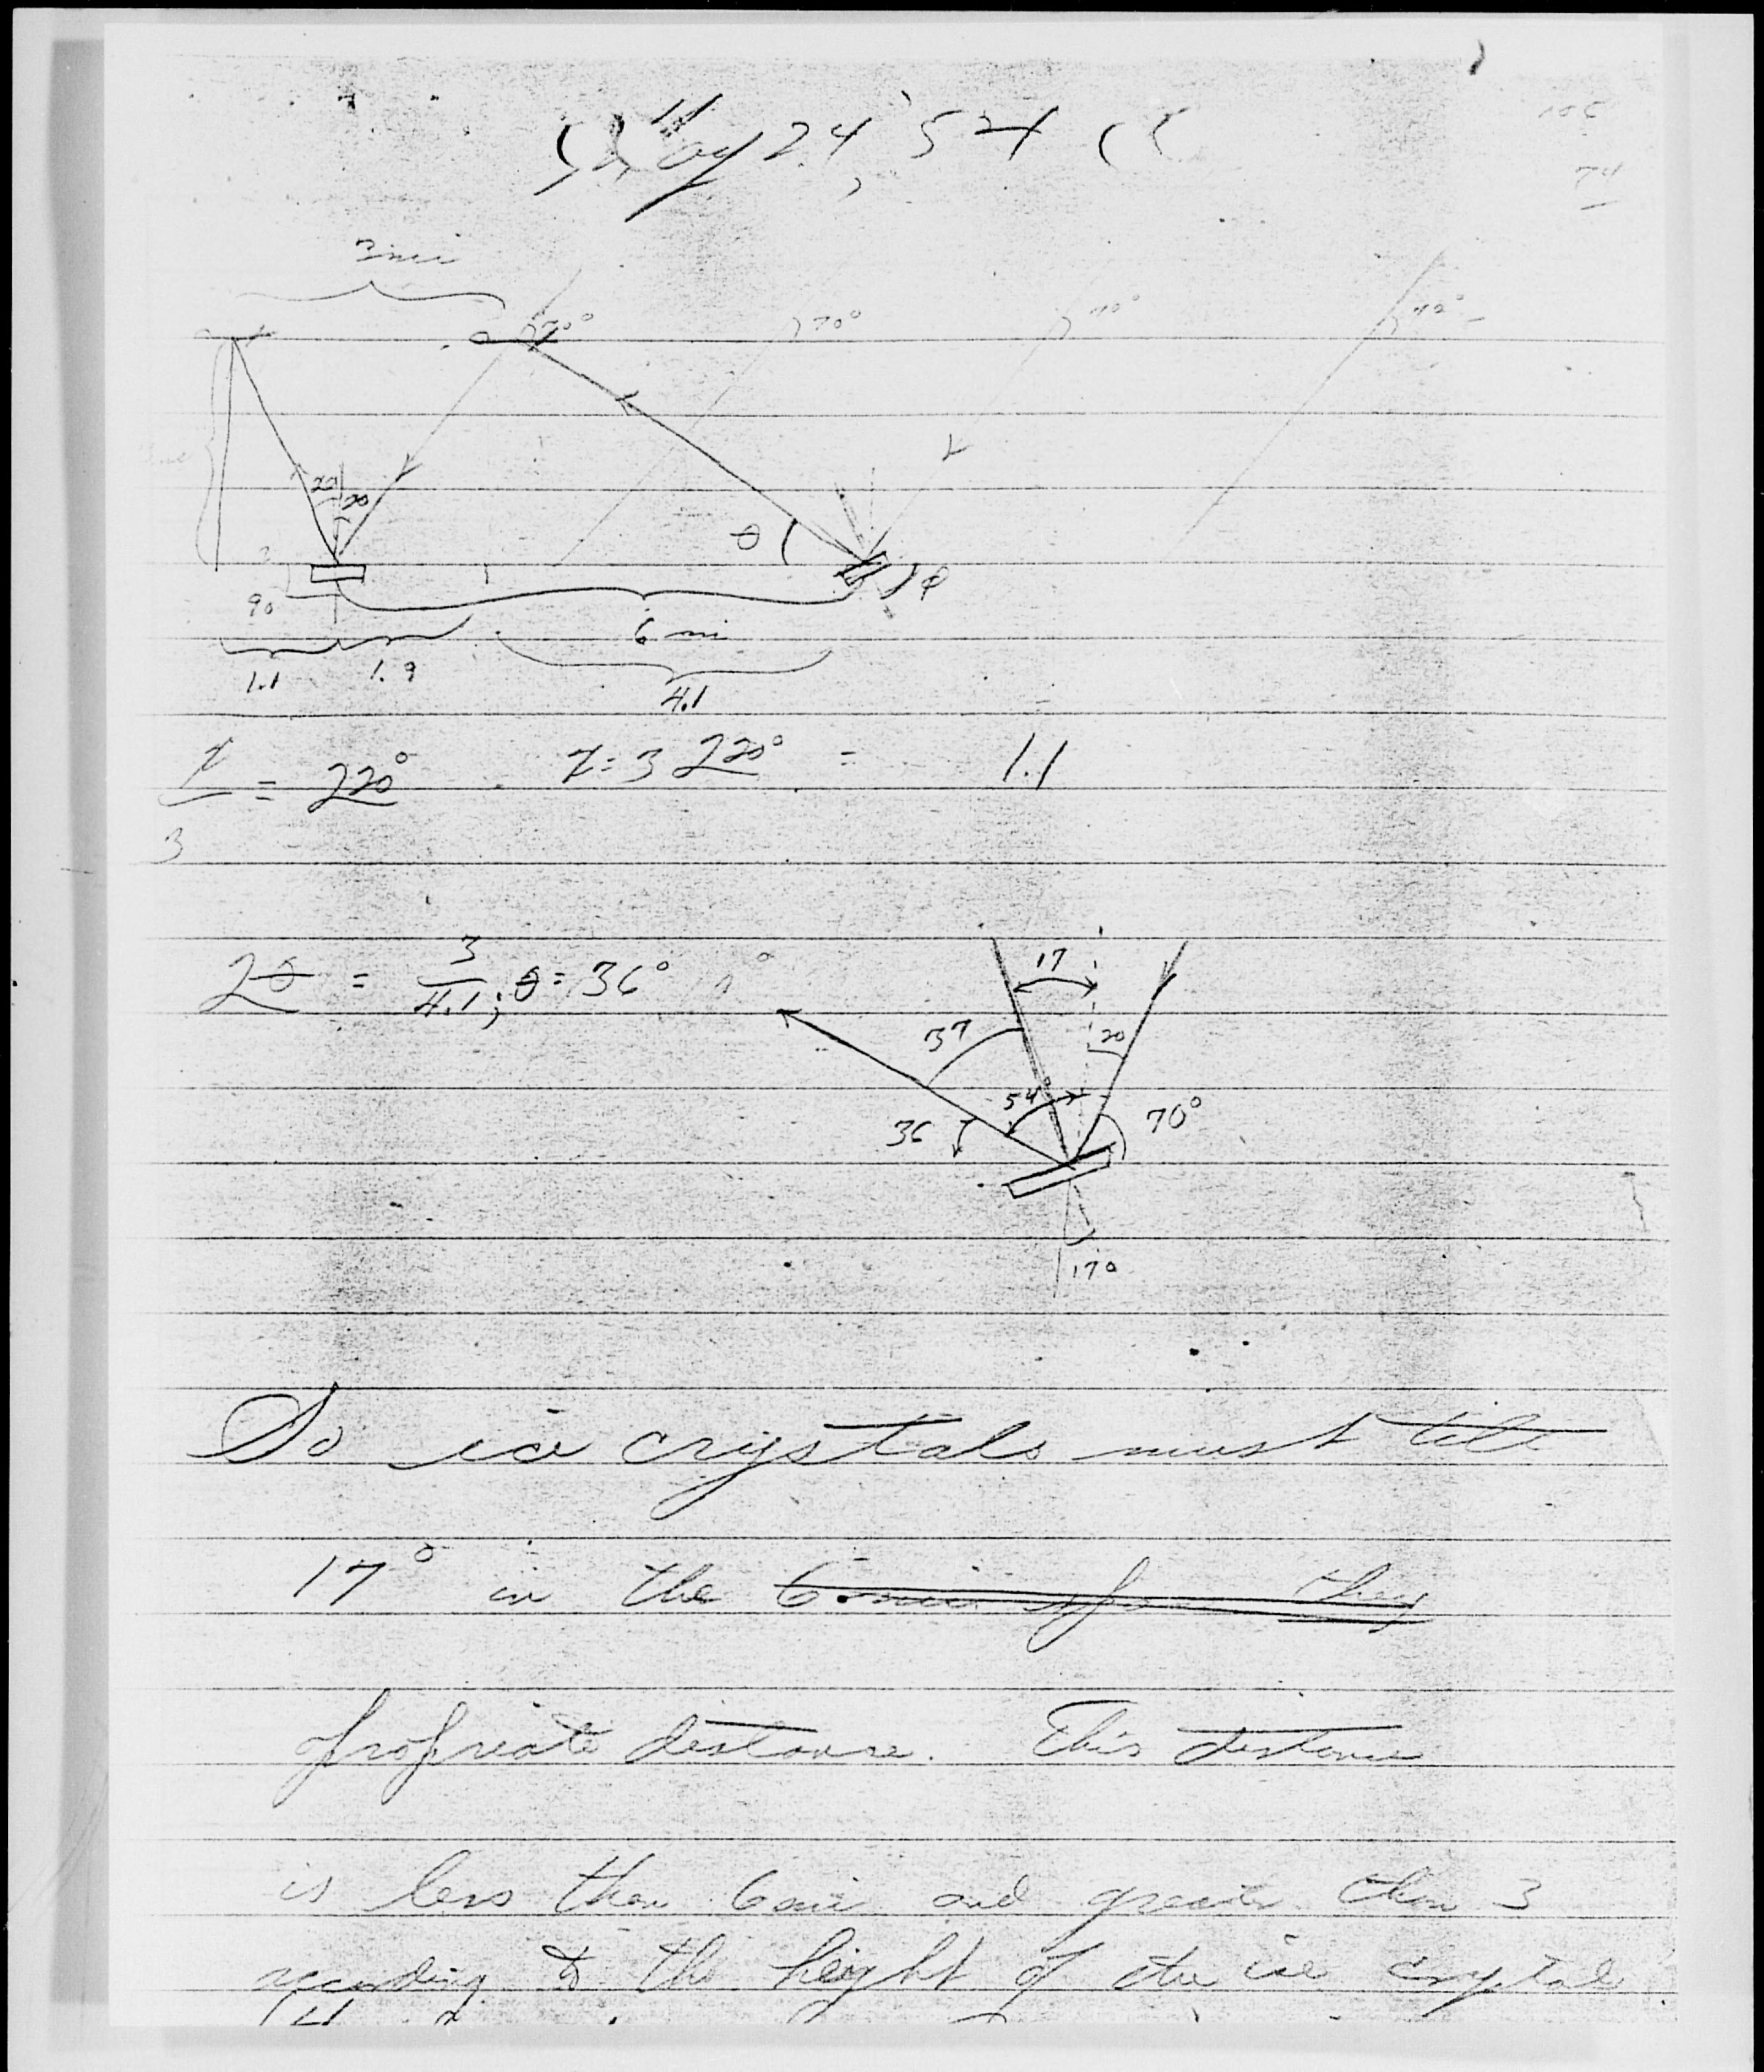 May 24, '54
105
74
3 mi
70° 70° 70° 70°
20 20
θ φ
90
6 mi
1.1 1.9
4.1
= 220° = 3 220° = 1.1
3
= 3/4.1; θ = 36°
17
37 20
54° 70°
36
17°
So ice crystals must tilt
17° in the 6 mi they
propriate distance. This distance
is less than 6 mi and greater than 3
according to the height of the ice crystal